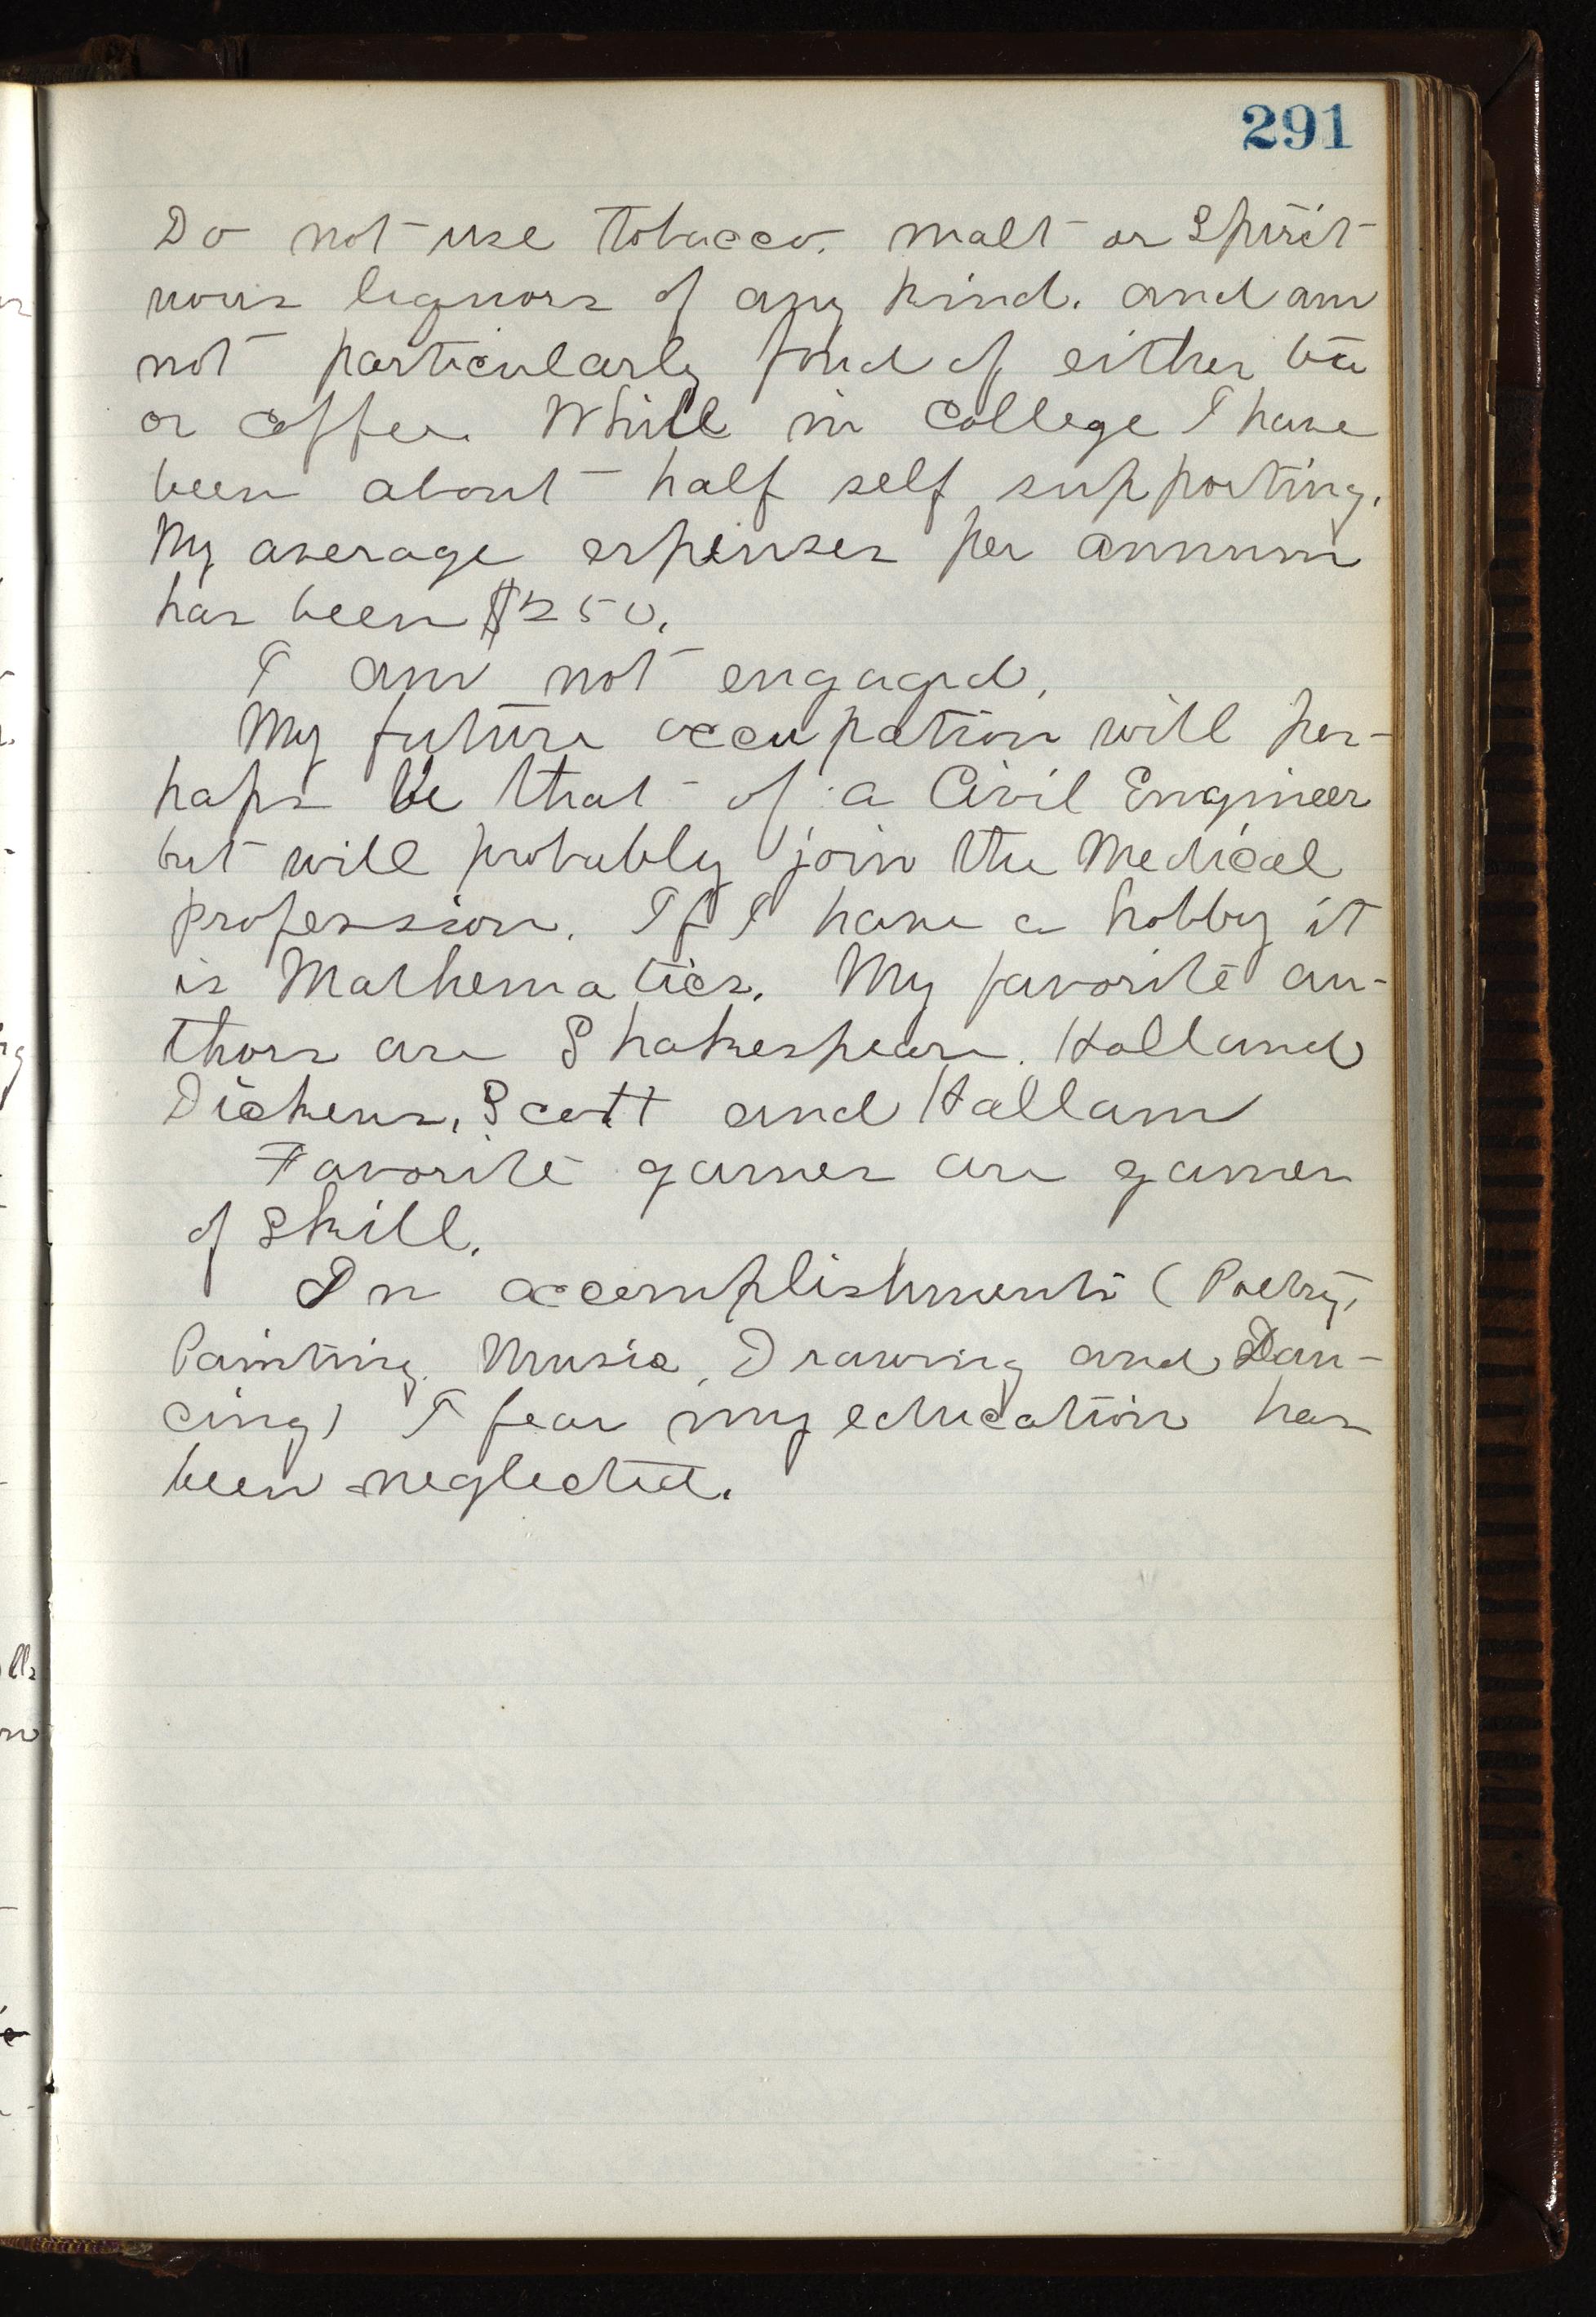 291
Do not use tobacco, malt or Spirit-
uous liquors of any kind. and am
not particularly fond of either tea
or coffee. While in College I have
been about half self supporting.
My average expenses per annum
has been $250.
I am not engaged.
My future occupation will per-
haps be that of a Civil Engineer
but will probably join the Medical
profession. If I have a hobby it
is Mathematics. My favorite au-
thors are Shakespeare. Holland
Dickens, Scott and Hallam
Favorite games are games
of Skill.
In accomplishments (Poetry,
Painting, Music, Drawing and Dan-
cing) I fear my education has
been neglected.